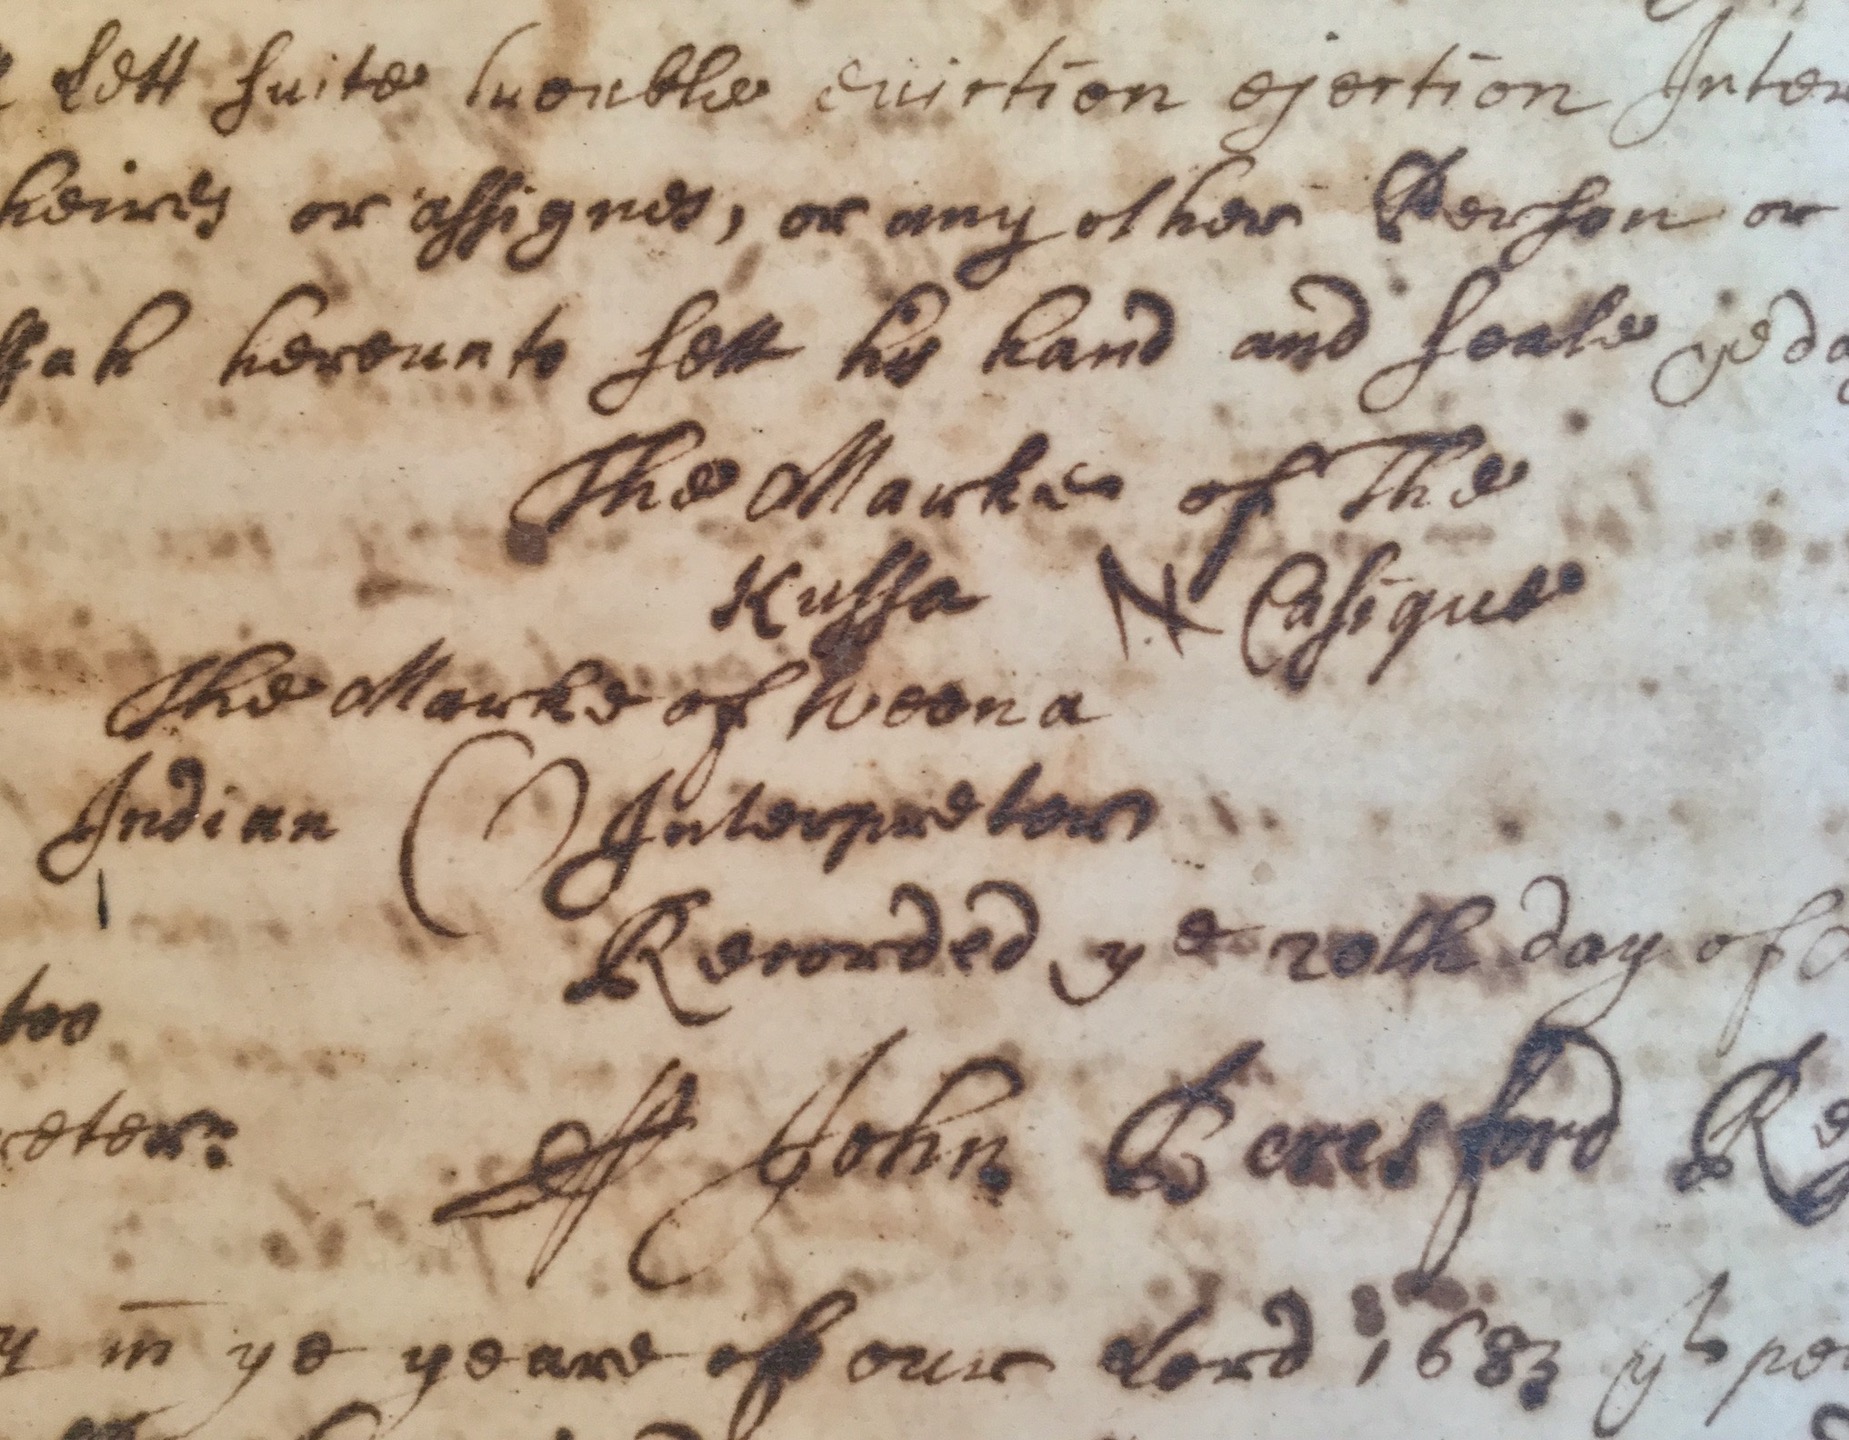 Lett suite trouble eviction ejection Inter
heires or assignes, or any other Person or
ssah hereunto sett his hand and seale ye da
The Marke of The
Kussa N Casique
The Marke of Weena
Indian Interpreter
Recorded ye 20th day of
too
reter:
John Beresford Reg
in ye yeare of our Lord 1683 yt per